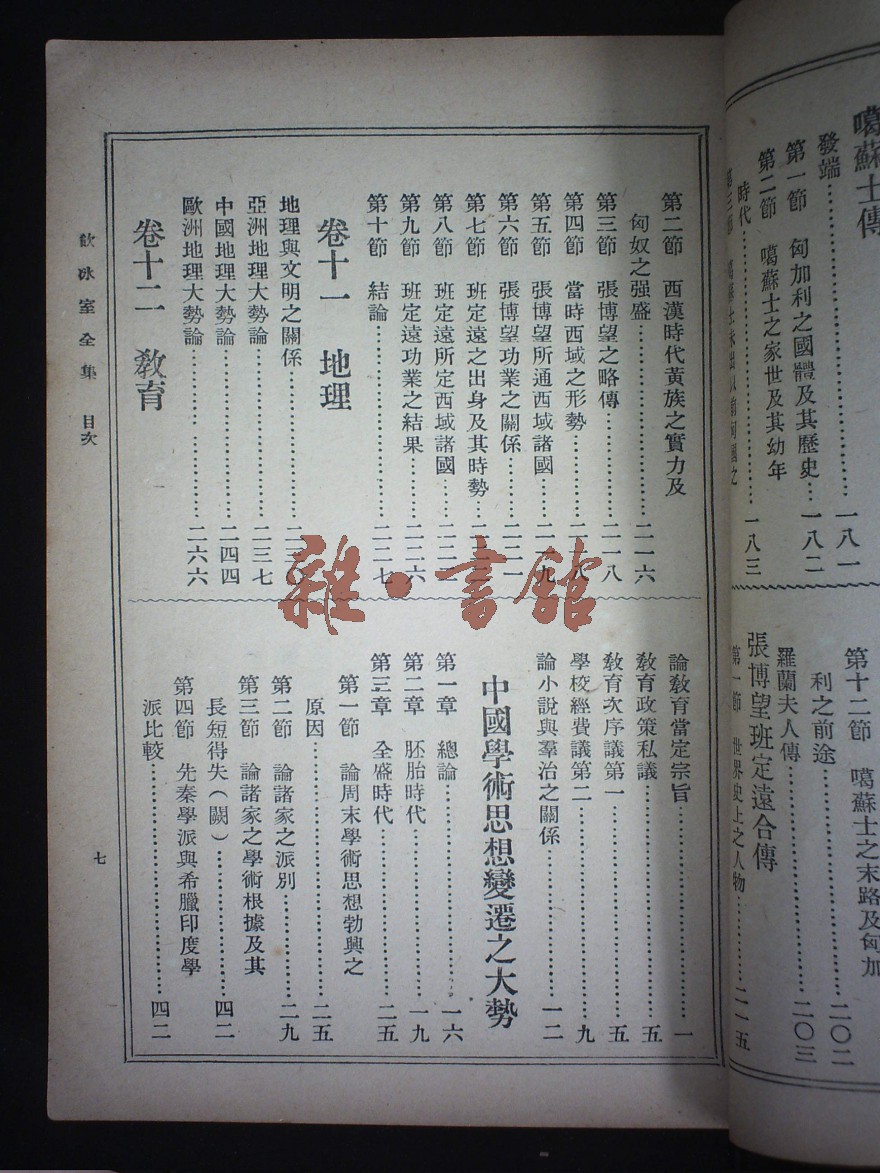 噶蘇士傳
發端……一八一
第一節　匈加利之國體及其歷史…一八二
第二節　噶蘇士之家世及其幼年
時代……一八三
第三節　噶蘇士未出以前匈國之
第十二節　噶蘇士之末路及匈加
利之前途……二〇二
羅蘭夫人傳……二〇三
張博望班定遠合傳
第一節　世界史上之人物……二一五
第二節　西漢時代黃族之實力及
匈奴之强盛……二一六
第三節　張博望之略傳……二一八
第四節　當時西域之形勢……二一八
第五節　張博望所通西域諸國……二一九
第六節　張博望功業之關係……二二一
第七節　班定遠之出身及其時勢……二二
第八節　班定遠所定西域諸國……二二
第九節　班定遠功業之結果……二二六
第十節　結論……二二七
卷十一　地理
地理與文明之關係……二三〇
亞洲地理大勢論……二三七
中國地理大勢論……二四四
歐洲地理大勢論……二六六
卷十二　教育
論敎育當定宗旨……一
敎育政策私議……五
敎育次序議第一……五
學校經費議第二……九
論小說與羣治之關係……一二
中國學術思想變遷之大勢
第一章　總論……一六
第二章　胚胎時代……一九
第三章　全盛時代……二五
第一節　論周末學術思想勃興之
原因……二五
第二節　論諸家之派別……二九
第三節　論諸家之學術根據及其
長短得失（闕）……四二
第四節　先秦學派與希臘印度學
派比較……四二
飲冰室全集　目次
七
雜·書館